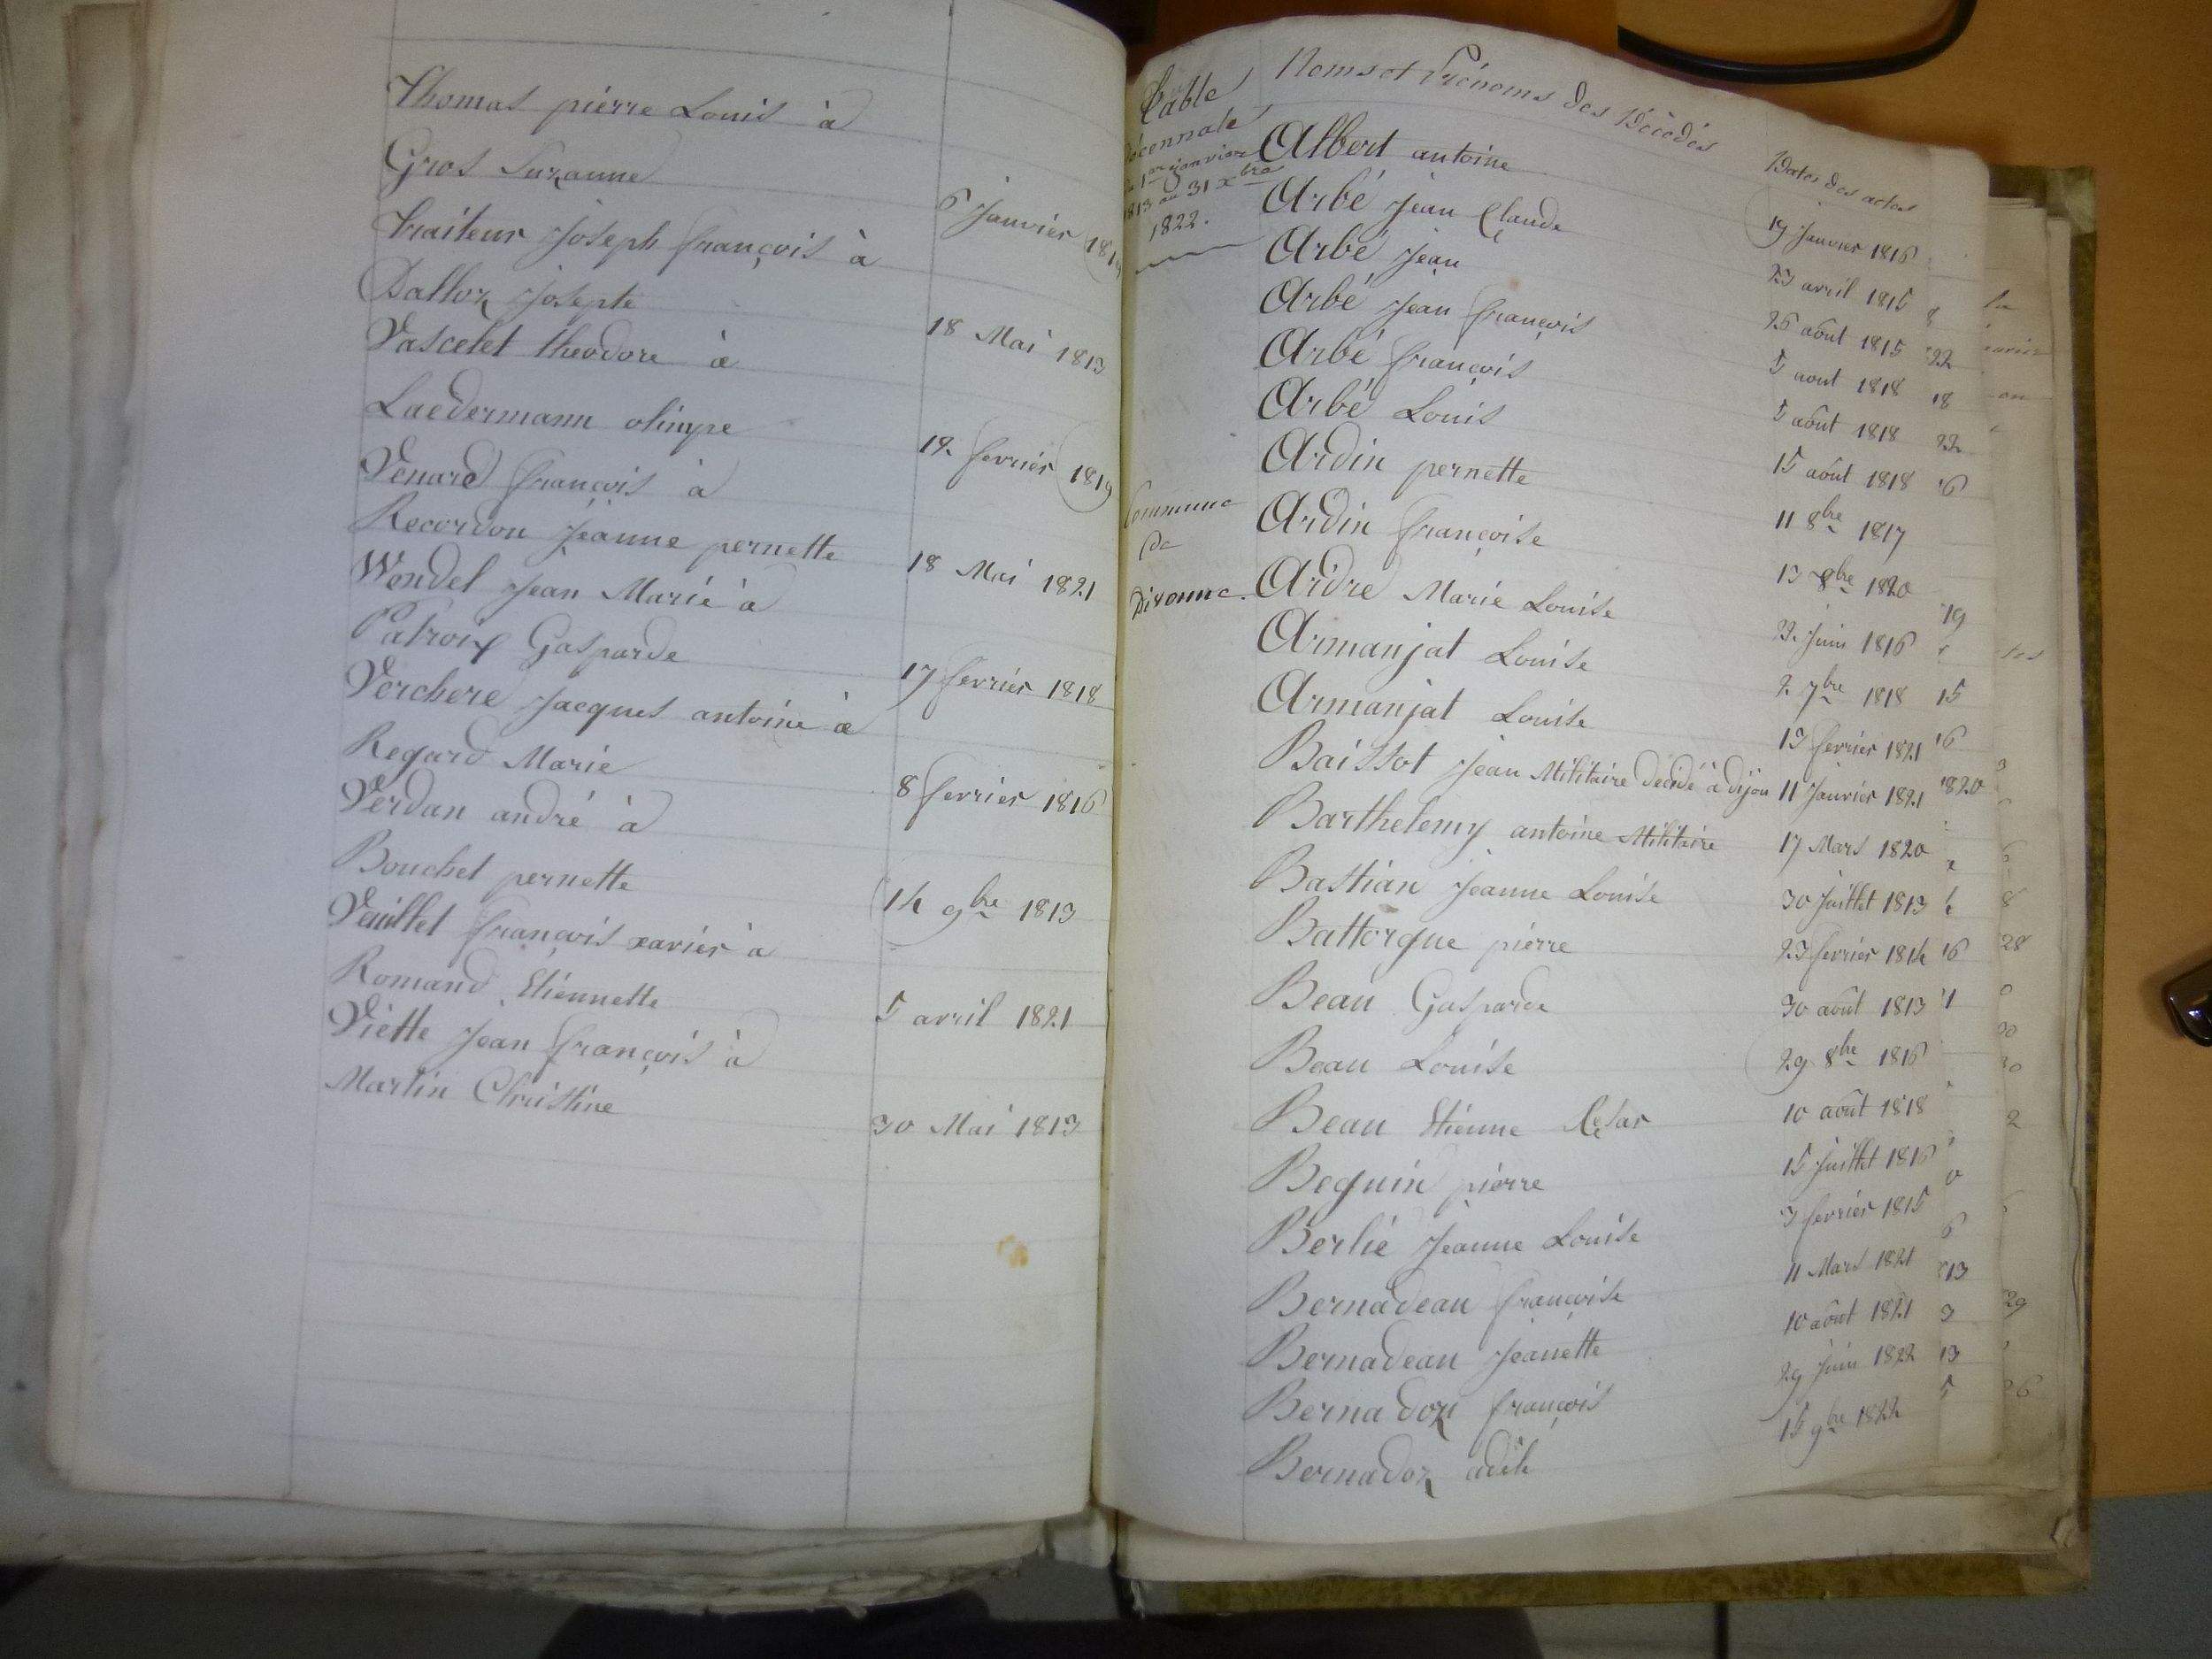 Thomas pierre Louis à
Gros Suzanne
6 Janvier 1819
Traiteur Joseph françois à
Dalloz Josepte
18 Mai 1813
Vascelet theodore à
Laedermann olimpe
12 fevrier 1819
Venard françois à
Recordon Jeanne pernette
18 Mai 1821
Wendel Jean Marie à
Patroix Gasparde
17 fevrier 1818
Verchere Jacques antoine à
Regard Marie
8 fevrier 1816
Verdan andré à
Bouchet pernette
14 9bre 1813
Vaillet françois xavier à
Romand Etiennette
5 avril 1821
Viette Jean françois à
Martin Christine
30 Mai 1813
Table
décennale
du 1er janvier
1813 au 31 Xbre
1822.
Commune
de
Divonne.
Noms et Prénoms des Décédés
Dates des actes
Albert antoine
19 Janvier 1816
Arbé Jean Claude
23 avril 1815
Arbé Jean
26 août 1815
Arbé Jean françois
5 aout 1818
Arbé françois
5 août 1818
Arbé Louis
15 août 1818
Ardin pernette
11 8bre 1817
Ardin françoise
13 8bre 1820
Ardre Marie Louise
22 Juin 1816
Armanjat Louise
2 7bre 1818
Armanjat Louise
13 fevrier 1821
Baissot Jean Militaire décédé à dijon
11 Janvier 1821
Barthelemy antoine Militaire
17 Mars 1820
Bastian Jeanne Louise
30 Juillet 1813
Battorgue pierre
23 fevrier 1814
Beau Gasparde
30 août 1813
Beau Louise
29 8bre 1816
Beau Etienne Cesar
10 août 1818
Beguin pierre
15 Juillet 1816
Berlié Jeanne Louise
3 fevrier 1815
Bernadeau françoise
11 Mars 1821
Bernadeau Jeanette
10 août 1821
Bernadoz françois
29 Juin 1822
Bernadoz adèle
15 9bre 1822